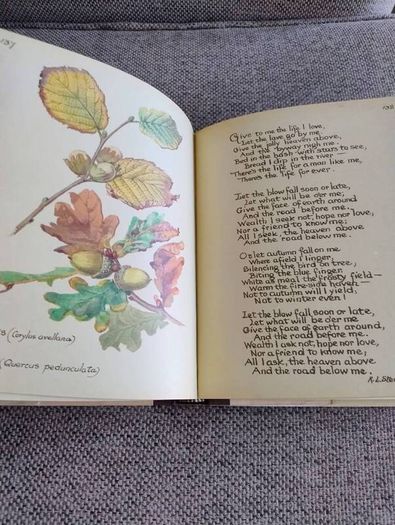 137
s (Corylus avellana)
(Quercus pedunculata)
138
Give to me the life I love,
Let the lave go by me,
Give the jolly heaven above,
And the byway nigh me.
Bed in the bush with stars to see,
Bread I dip in the river —
There's the life for a man like me,
There's the life for ever.
Let the blow fall soon or late,
Let what will be o'er me;
Give the face of earth around
And the road before me.
Wealth I seek not, hope nor love,
Nor a friend to know me;
All I seek, the heaven above
And the road below me.
Or let autumn fall on me
Where afield I linger,
Silencing the bird on tree,
Biting the blue finger.
White as meal the frosty field —
Warm the fire-side haven —
Not to autumn will I yield,
Not to winter even!
Let the blow fall soon or late,
Let what will be o'er me
Give the face of earth around,
And the road before me.
Wealth I ask not, hope nor love,
Nor a friend to know me,
All I ask, the heaven above
And the road below me.
R. L. Ste